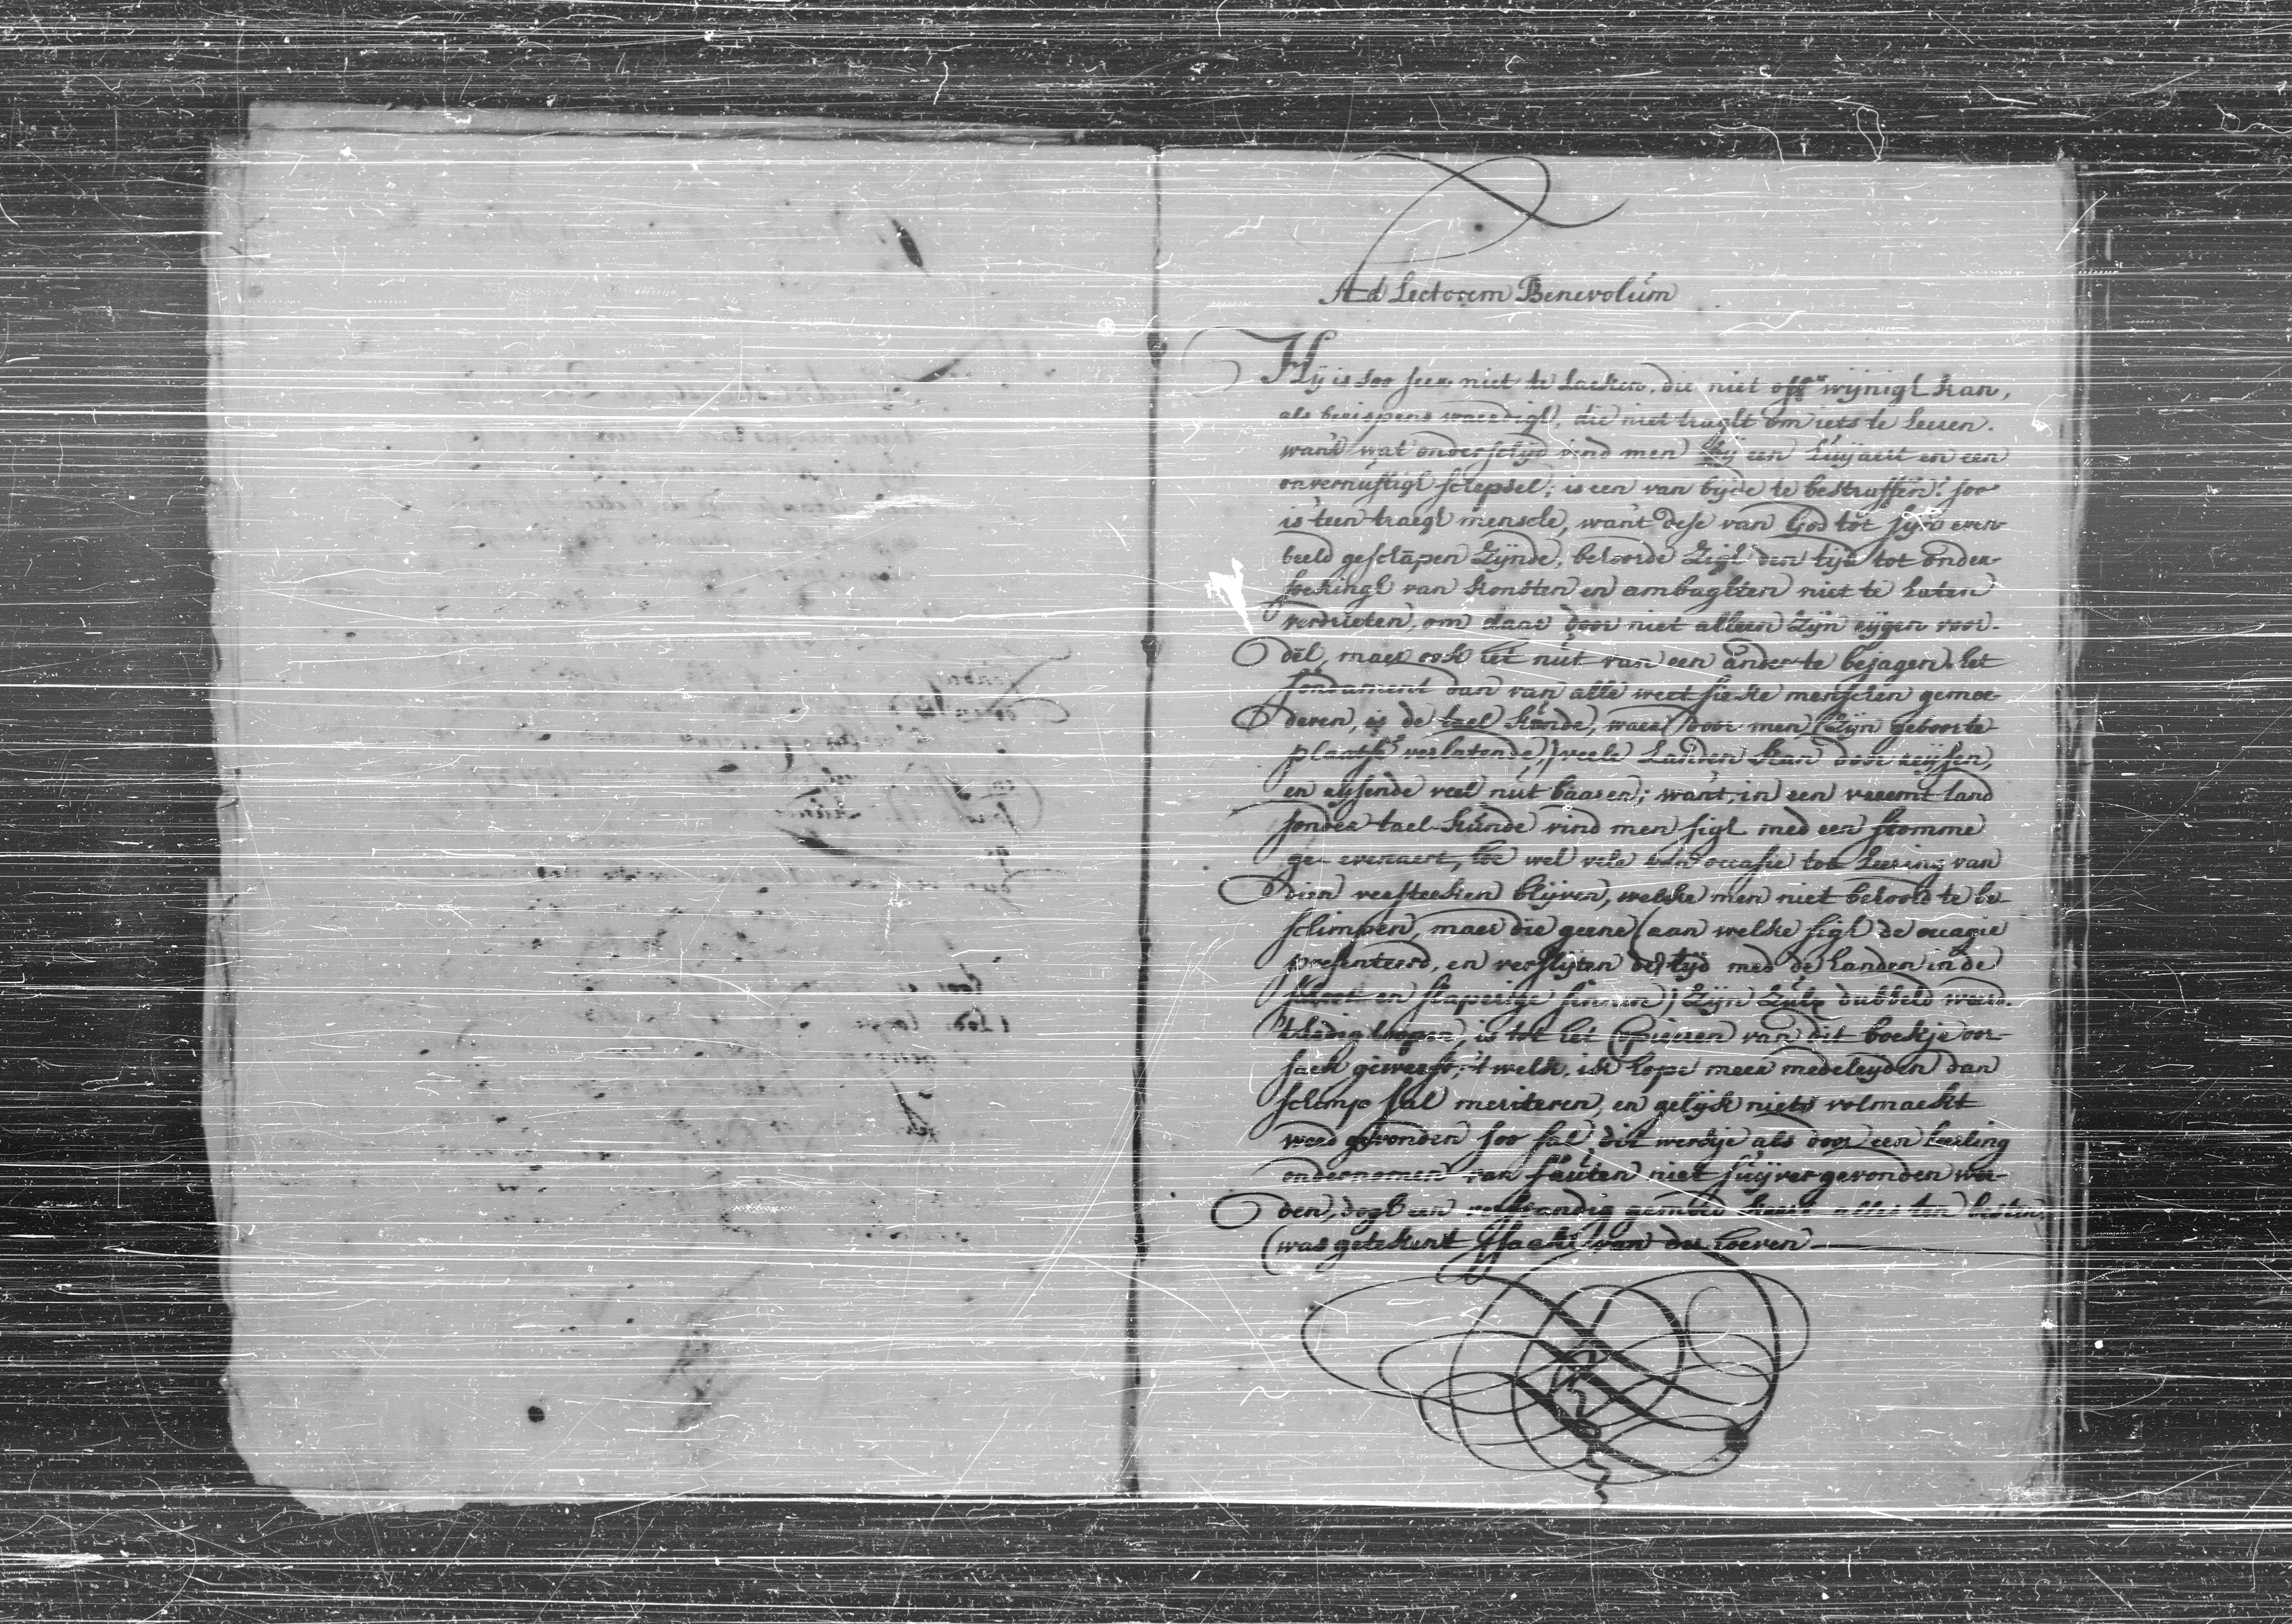 Ad Lectorem Benevolum
Hij is soo seer niet te laeken, die niet off wijnigh kan,
als berispens waerdigh, die niet traght om iets te leeren.
want wat onderschijd vind men bij een luijaert en een
onvernuftigh schepsel; is een van bijde te bestraffen? soo
is 't een traegh mensche, want dese van God tot sijn even
beeld geschapen zijnde, behoorde zigh den tijd tot onder-
soekingh van konsten en ambaghten niet te laten
verdrieten, om daar door niet alleen zijn eijgen voor-
dēl, maer ook het nut van een ander te bejagen. het
fondament dan van alle weet sieke menschen gemoe-
deren, is de tael kunde, waer door men (zijn geboorte
plaatse verlatende,) veele landen kan door reijsen,
en rijsende veel nut baaren; want, in een vreemt land
sonder tael-kunde vind men sigh med een stomme
ge-evenaert, hoe wel vele van occasie tot leering van
dien versteeken blijven, welke men niet behoord te be-
schimpen, maer die geene (aan welke sigh de occagie
presenteerd, en verslijten de tijd med de handen in de
en slaperige sinnen) zijn zulx dubbeld weerd.
't Ledig loopen, is tot het Copieeren van dit boekje oor-
saek geweest, 't welk, ik hope meer medeleijden dan
schimp sal meriteren, en gelijk niets volmaekt
werd gevonden soo sal dit werkje als door een leerling
ondernomen van fauten niet suijver gevonden wer-
den, dogh een verstandig gemoed keert alles ten besten.
(was geteekent) Isaak van der Hoeven